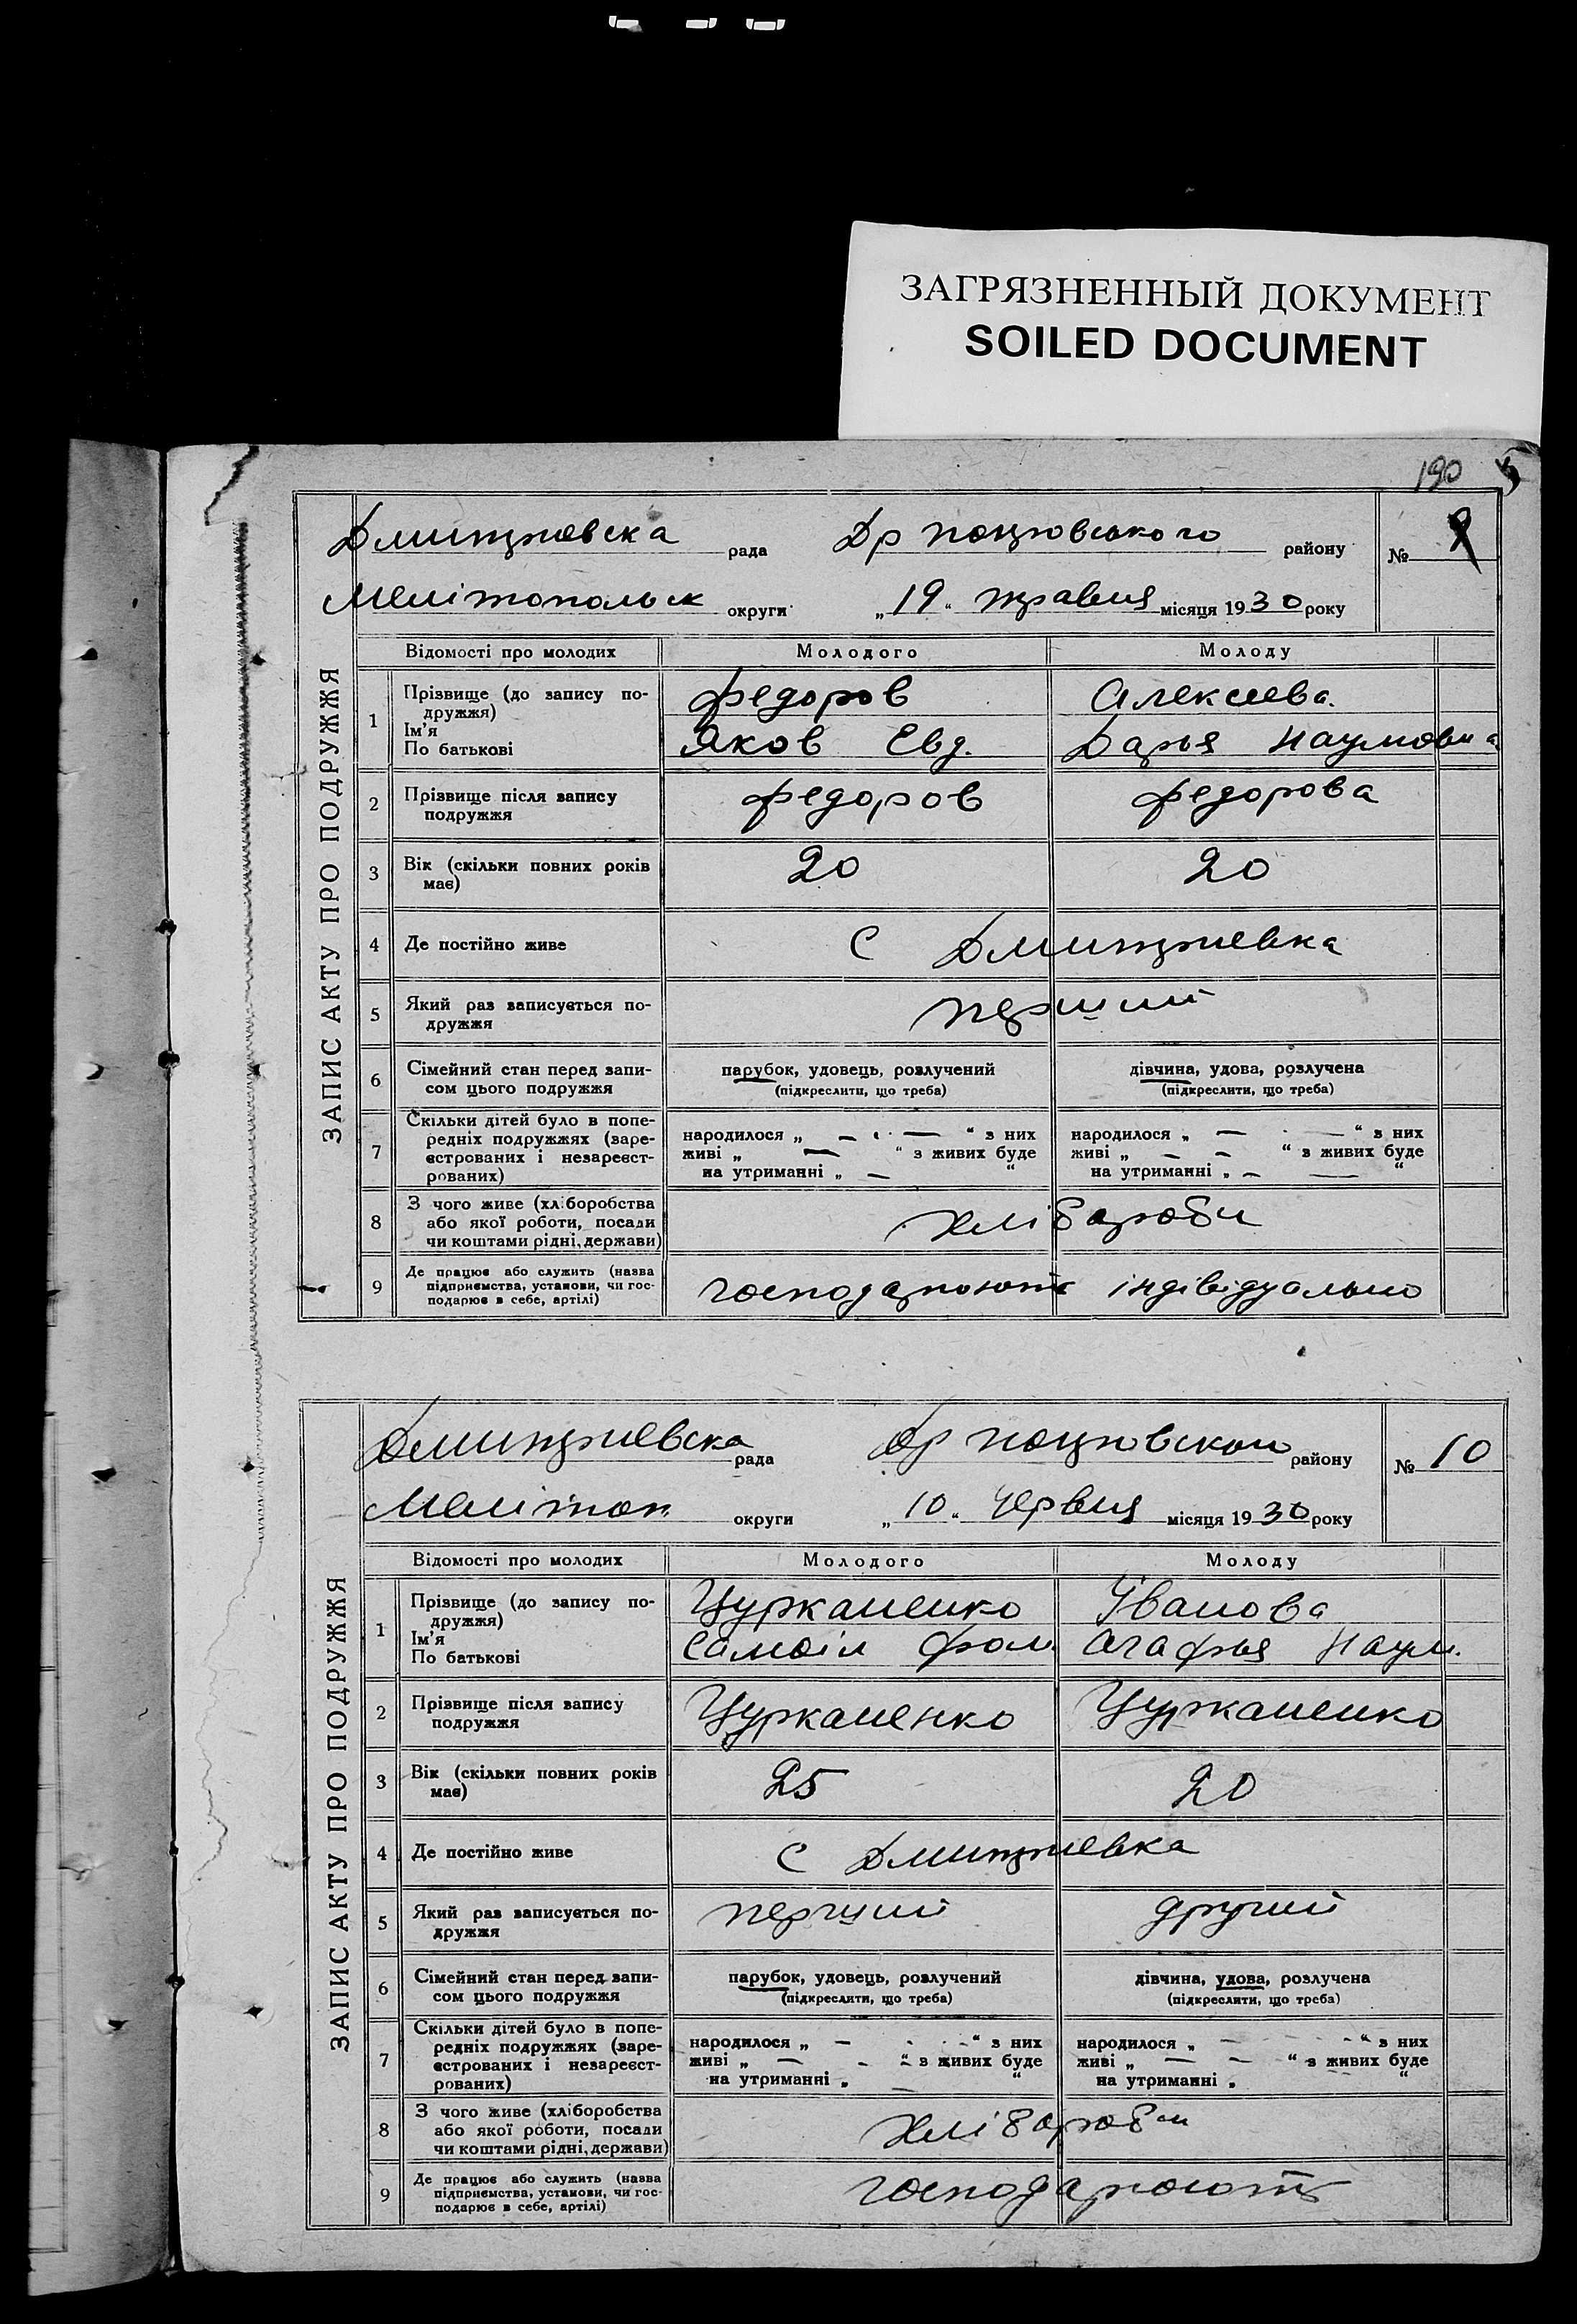 ЗАГРЯЗНЕННЫЙ ДОКУМЕНТ
SOILED DOCUMENT
190
ЗАПИС АКТУ ПРО ПОДРУЖЖЯ
Дмитриевска рада районy №
Мелітопольск округи „19“ травня місяця 1930 року
Відомості про молодих Молодого Молоду
1 Прізвище (до запису по- Федоров Алексеева.
дружжя)
Ім’я
По батькові Яков Евд. Дарья Наумовна
2 Прізвище після запису Федоров Федорова
подружжя
3 Вік (скільки повних років 20 20
має)
4 Де постійно живе С Дмитриевка
5 Який раз записується по- перший
дружжя
6 Сімейний стан перед запи- парубок, удовець, розлучений дівчина, удова, розлучена
сом цього подружжя (підкреслити, що треба) (підкреслити, що треба)
7 Скільки дітей було в попе-
редніх подружжях (заре- народилося „ — — “ з них народилося „ — — “ з них
єстрованих і незареєст- живі „ — “ з живих буде живі „ — — “ з живих буде
рованих) на утриманні „ — “ на утриманні „ — — “
8 З чого живе (хліборобства
або якої роботи, посади хлібороби
чи коштами рідні, держави)
9 Де працює або служить (назва
підприємства, установи, чи гос- господарюють індівідуально
подарює в себе, артілі)
ЗАПИС АКТУ ПРО ПОДРУЖЖЯ
Дмитриевска рада району № 10
Мелітоп. округи „10“ Червня місяця 1930 року
Відомості про молодих Молодого Молоду
1 Прізвище (до запису по- Цуркаменко Іванова
дружжя)
Ім’я Самоіл Фом. Агафья Наум.
По батькові
2 Прізвище після запису Цурканенко Цурканенко
подружжя
3 Вік (скільки повних років 25 20
має)
4 Де постійно живе С Дмитриевка
5 Який раз записується по- перший другий
дружжя
6 Сімейний стан перед запи- парубок, удовець, розлучений дівчина, удова, розлучена
сом цього подружжя (підкреслити, що треба) (підкреслити, що треба)
7 Скільки дітей було в попе-
редніх подружжях (заре- народилося „ — “ з них народилося „ — “ з них
єстрованих і незареєст- живі „ — “ з живих буде живі „ — — “ з живих буде
рованих) на утриманні „ — “ на утриманні „ “
8 З чого живе (хліборобства
або якої роботи, посади хлібороби
чи коштами рідні, держави)
9 Де працює або служить (назва
підприємства, установи, чи гос- господарюють
подарює в себе, артілі)